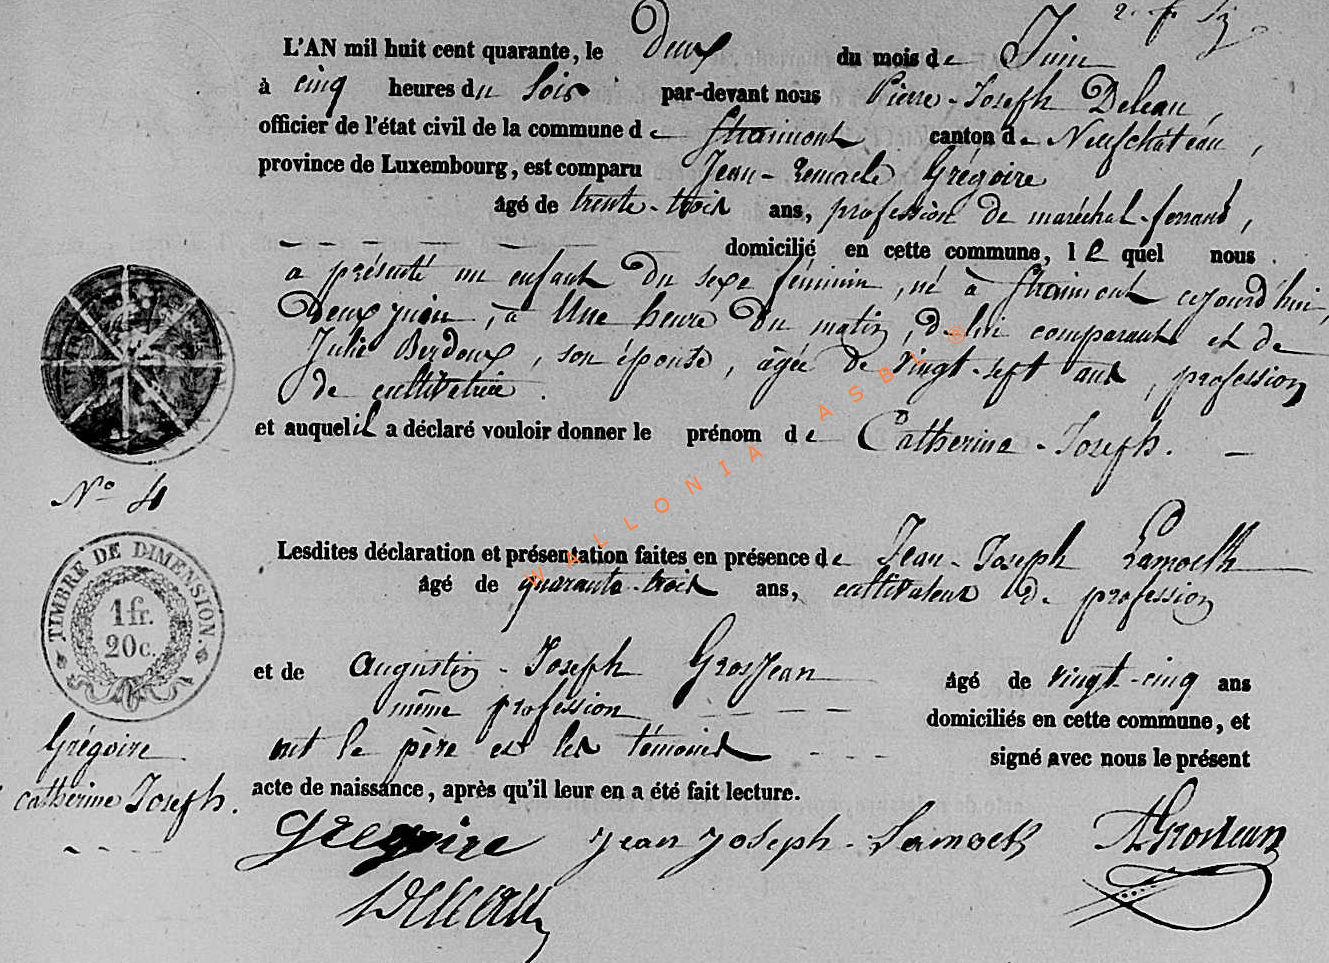 L'AN mil huit cent quarante, le Deux du mois de Juin
à cinq heures du Soir par-devant nous Pierre-Joseph Deleau,
officier de l'état civil de la commune de Straimont canton de Neufchâteau,
province de Luxembourg, est comparu Jean-Remacle Grégoire
âgé de trente-trois ans, profession de maréchal-ferrant,
domicilié en cette commune, lequel nous
a présenté un enfant Du sexe féminin, né à Straimont cejourd'hui,
Deux juin, à Une heure Du matin, de lui comparant et de
Julie Berdoux, son épouse, âgée de vingt-sept ans, profession
de cultivatrice.
et auquel il a déclaré vouloir donner le prénom de Catherine-Joseph.
N° 4
Lesdites déclaration et présentation faites en présence de Jean-Joseph Lamock
TIMBRE DE DIMENSION.
1 fr.
20 c.
âgé de quarante-trois ans, cultivateur de profession
et de Augustin-Joseph GrosJean âgé de vingt-cinq ans
même profession domiciliés en cette commune, et
Grégoire
ont le père et les témoins signé avec nous le présent
Catherine Joseph.
acte de naissance, après qu'il leur en a été fait lecture.
Grégoire Jean Joseph Lamock A GrosJean
Deleau
WALLONIA ASBL ®